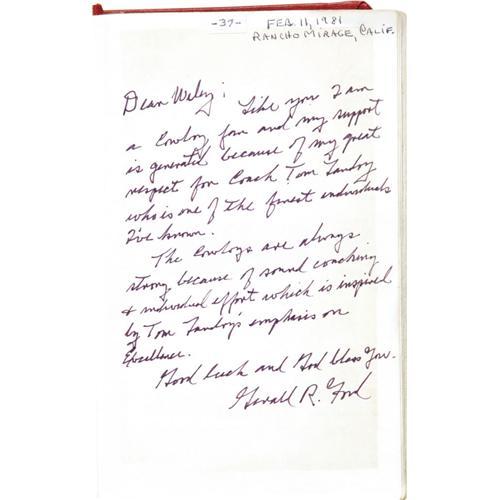 -37-
FEB. 11, 1981
RANCHO MIRAGE, CALIF.
Dear Wiley:
Like you I am
a Cowboy fan and my support
is generated because of my great
respect for Coach Tom Landry
who is one of the finest individuals
I've known.
The Cowboys are always
strong because of sound coaching
& individual effort which is inspired
by Tom Landry's emphasis on
Excellence.
Good luck and God bless you.
Gerald R. Ford